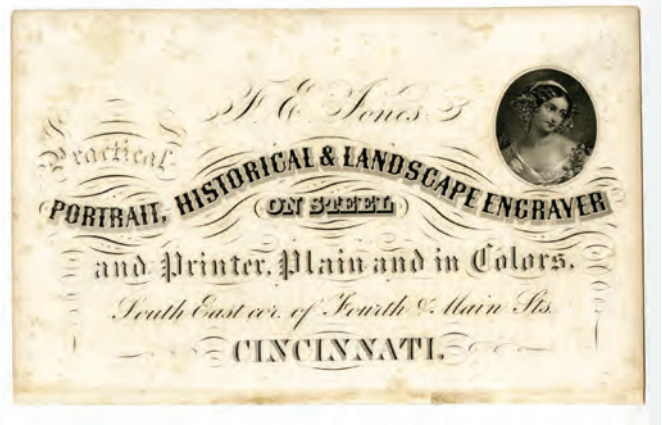 F. E. Jones
Practical
PORTRAIT, HISTORICAL & LANDSCAPE ENGRAVER
ON STEEL
and Printer, Plain and in Colors.
South East cor. of Fourth & Main Sts.
CINCINNATI.